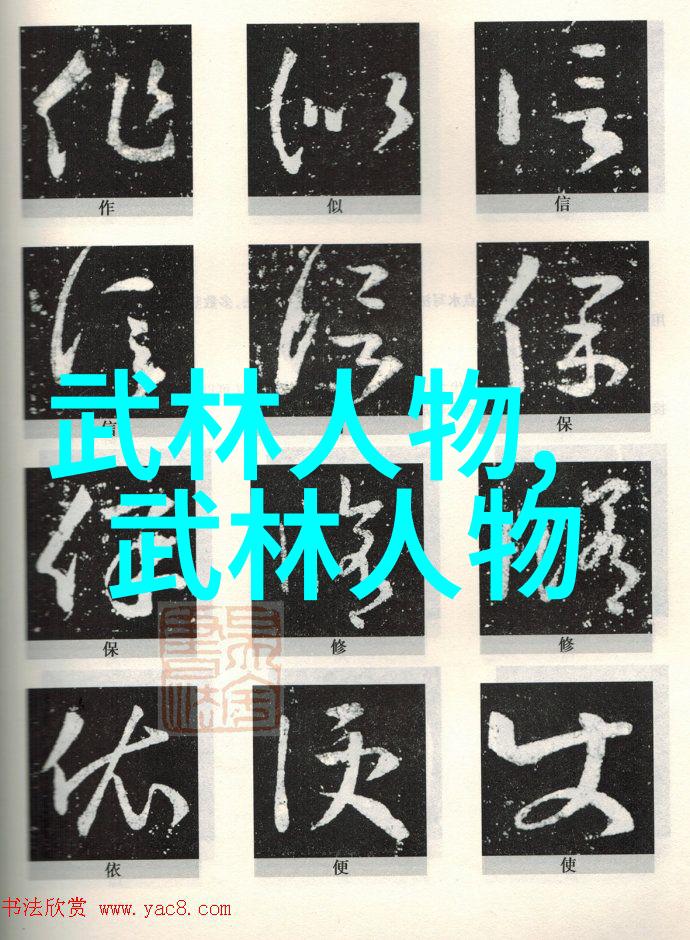 作 似 信
信 保
武林人物,
武林人物
保 修 修
依 便 使
书法欣赏 www.yac8.com